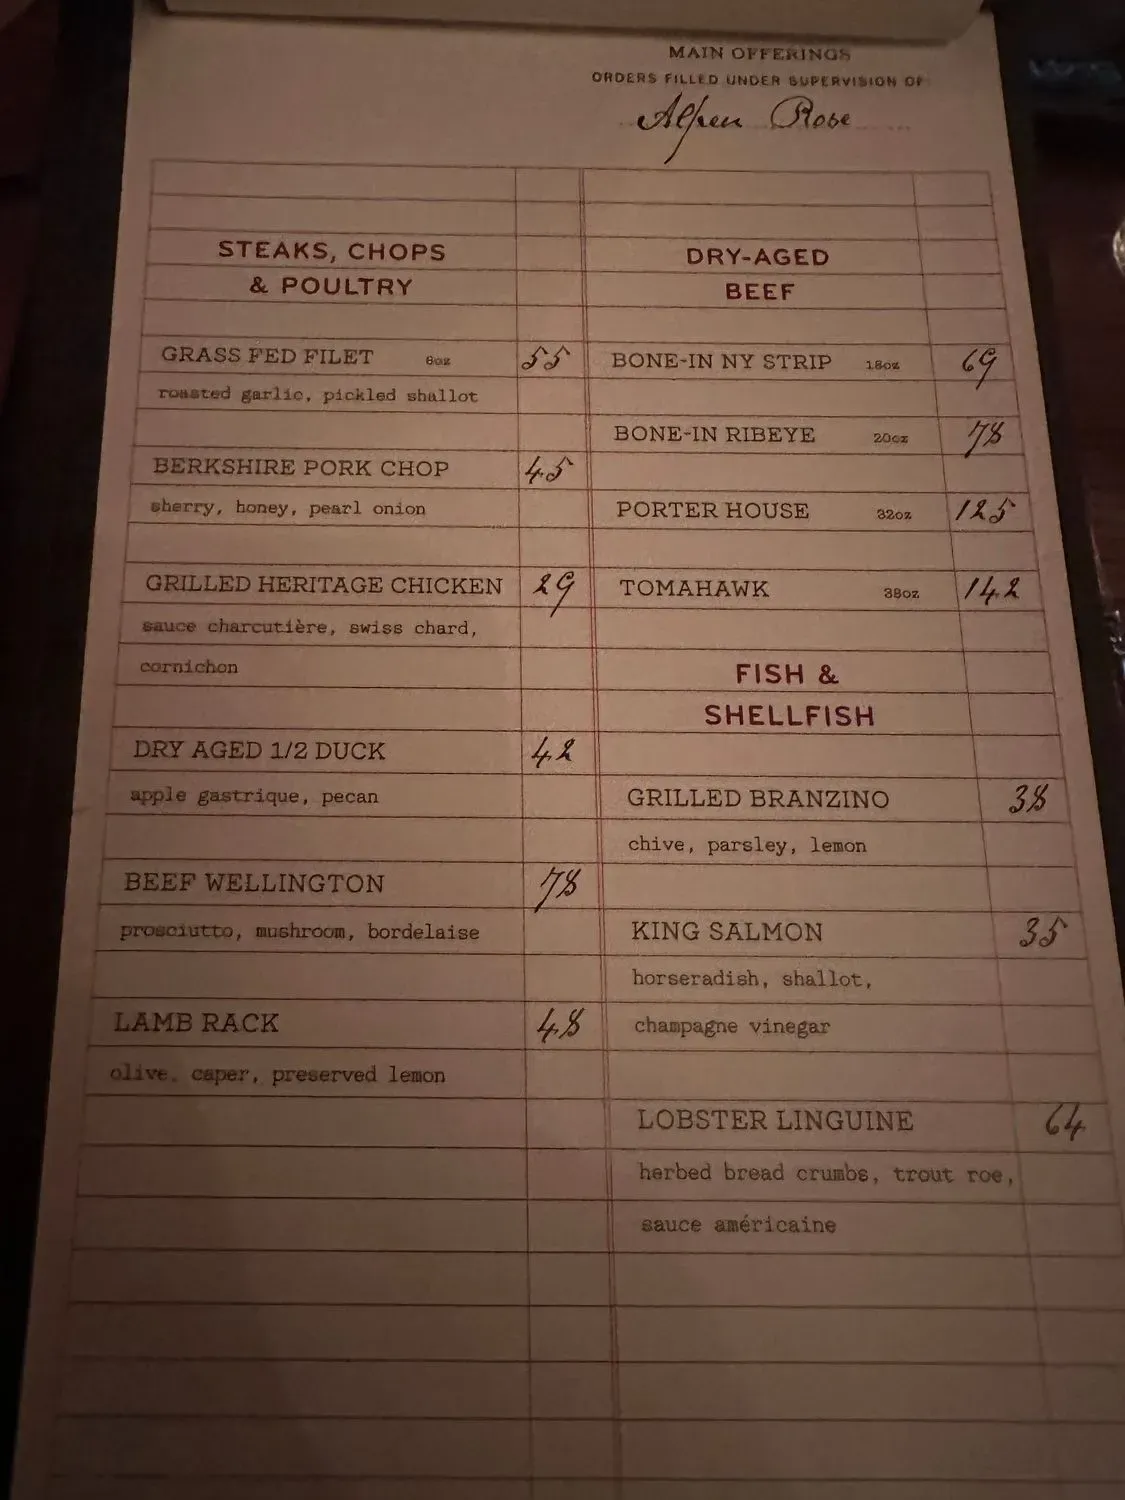 MAIN OFFERINGS
ORDERS FILLED UNDER SUPERVISION OF
Alpen Rose
STEAKS, CHOPS
& POULTRY
GRASS FED FILET 8oz 55
roasted garlic, pickled shallot
BERKSHIRE PORK CHOP 45
sherry, honey, pearl onion
GRILLED HERITAGE CHICKEN 29
sauce charcutière, swiss chard,
cornichon
DRY AGED 1/2 DUCK 42
apple gastrique, pecan
BEEF WELLINGTON 78
prosciutto, mushroom, bordelaise
LAMB RACK 48
olive, caper, preserved lemon
DRY-AGED
BEEF
BONE-IN NY STRIP 18oz 69
BONE-IN RIBEYE 20oz 78
PORTER HOUSE 32oz 125
TOMAHAWK 38oz 142
FISH &
SHELLFISH
GRILLED BRANZINO 38
chive, parsley, lemon
KING SALMON 35
horseradish, shallot,
champagne vinegar
LOBSTER LINGUINE 64
herbed bread crumbs, trout roe,
sauce américaine